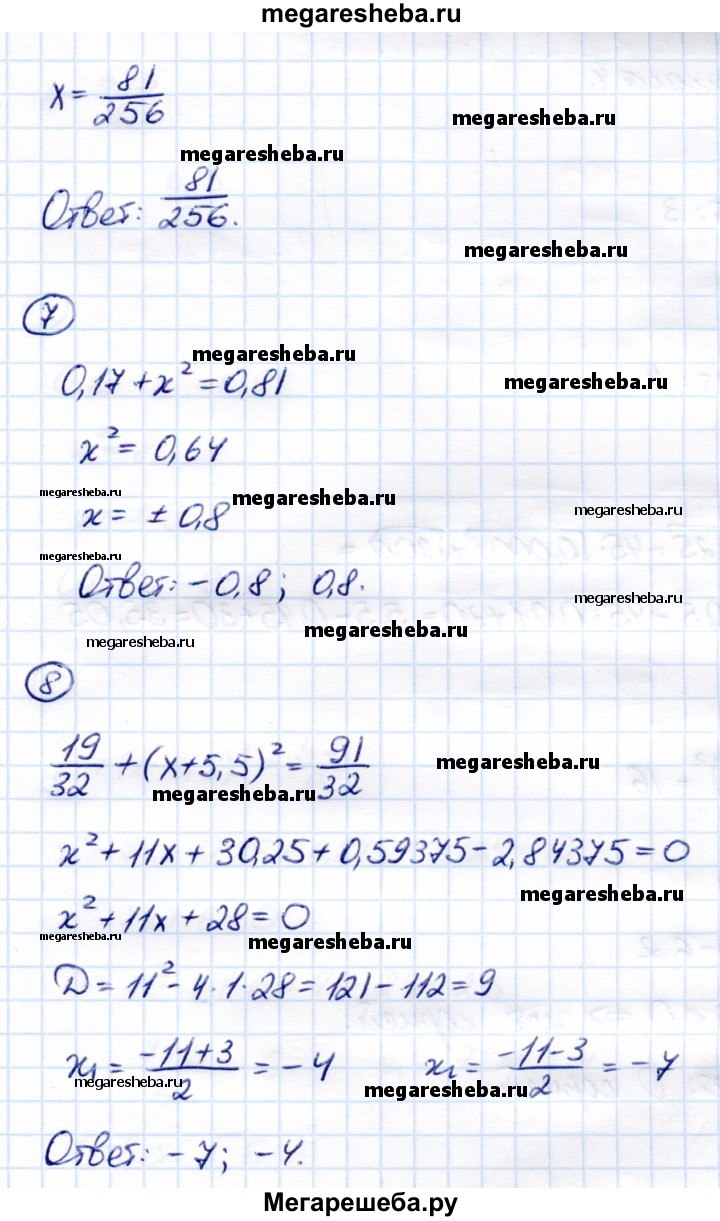 megaresheba.ru
x = 81/256
megaresheba.ru
megaresheba.ru
Ответ: 81/256.
megaresheba.ru
7
megaresheba.ru
0,17 + x² = 0,81
megaresheba.ru
x² = 0,64
megaresheba.ru
megaresheba.ru
x = ± 0,8
megaresheba.ru
megaresheba.ru
Ответ: -0,8; 0,8.
megaresheba.ru
megaresheba.ru
megaresheba.ru
8
19/32 + (x + 5,5)² = 91/32
megaresheba.ru
megaresheba.ru
x² + 11x + 30,25 + 0,59375 - 2,84375 = 0
megaresheba.ru
x² + 11x + 28 = 0
megaresheba.ru
megaresheba.ru
D = 11² - 4 · 1 · 28 = 121 - 112 = 9
x₁ = (-11+3)/2 = -4 x₂ = (-11-3)/2 = -7
megaresheba.ru
megaresheba.ru
Ответ: -7; -4.
Мегарешеба.ру